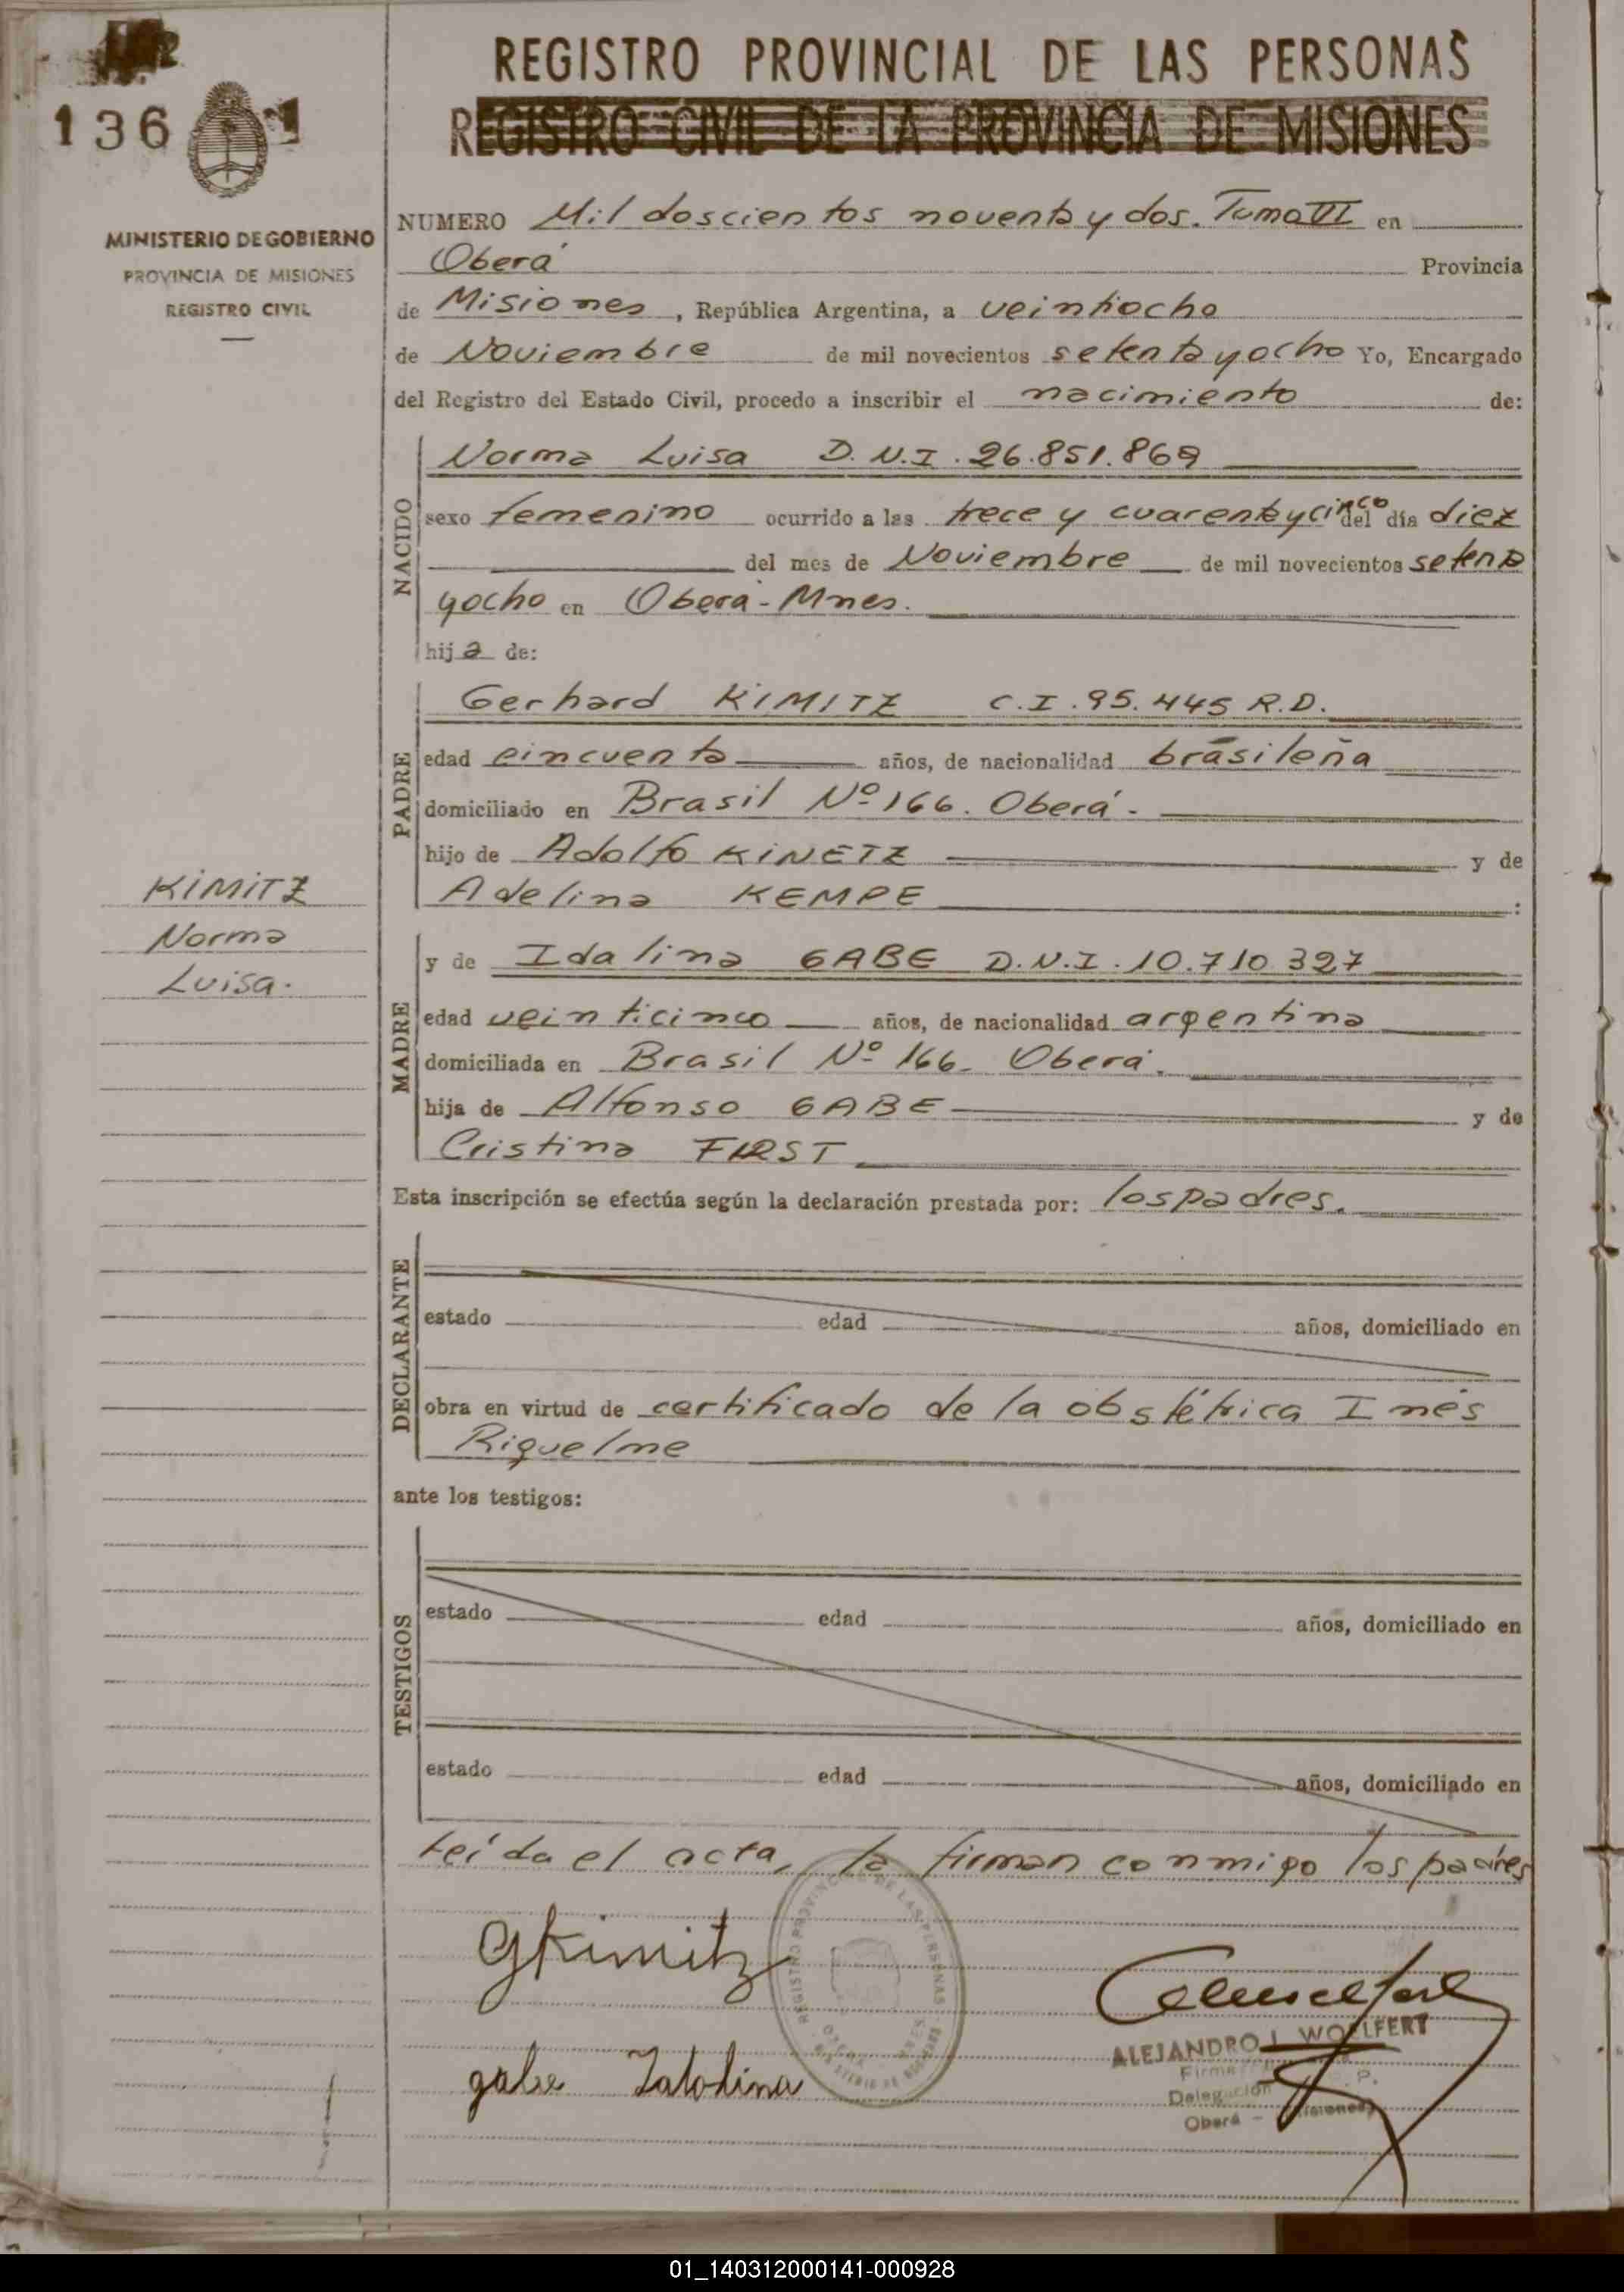 136
1
MINISTERIO DE GOBIERNO
PROVINCIA DE MISIONES
REGISTRO CIVIL
KIMITZ
Norma
Luisa.
REGISTRO PROVINCIAL DE LAS PERSONAS
REGISTRO CIVIL DE LA PROVINCIA DE MISIONES
NUMERO Mil doscientos noventa y dos. Tomo VI en
Oberá Provincia
de Misiones, República Argentina, a veintiocho
de Noviembre de mil novecientos setenta y ocho Yo, Encargado
del Registro del Estado Civil, procedo a inscribir el nacimiento de:
NACIDO
Norma Luisa D.N.I. 26.851.869
sexo femenino ocurrido a las trece y cuarenta y cinco del día diez
del mes de Noviembre de mil novecientos setenta
y ocho en Oberá - Mnes.
hija de:
PADRE
Gerhard KIMITZ C.I. 95.445 R.D.
edad cincuenta años, de nacionalidad brasileña
domiciliado en Brasil Nº 166. Oberá.
hijo de Adolfo KINETZ y de
Adelina KEMPE :
MADRE
y de Idalina GABE D.N.I. 10.710.327
edad veinticinco años, de nacionalidad argentina
domiciliada en Brasil Nº 166. Oberá.
hija de Alfonso GABE y de
Cristina FIRST
Esta inscripción se efectúa según la declaración prestada por: los padres.
DECLARANTE
estado edad años, domiciliado en
obra en virtud de certificado de la obstétrica Inés
Riquelme
ante los testigos:
TESTIGOS
estado edad años, domiciliado en
estado edad años, domiciliado en
Leída el acta, la firman conmigo los padres
GKimitz
REGISTRO PROVINCIAL DE LAS PERSONAS
gabe
ALEJANDRO L. WOELFERT
Delegación
Oberá - (Misiones)
01_140312000141-000928